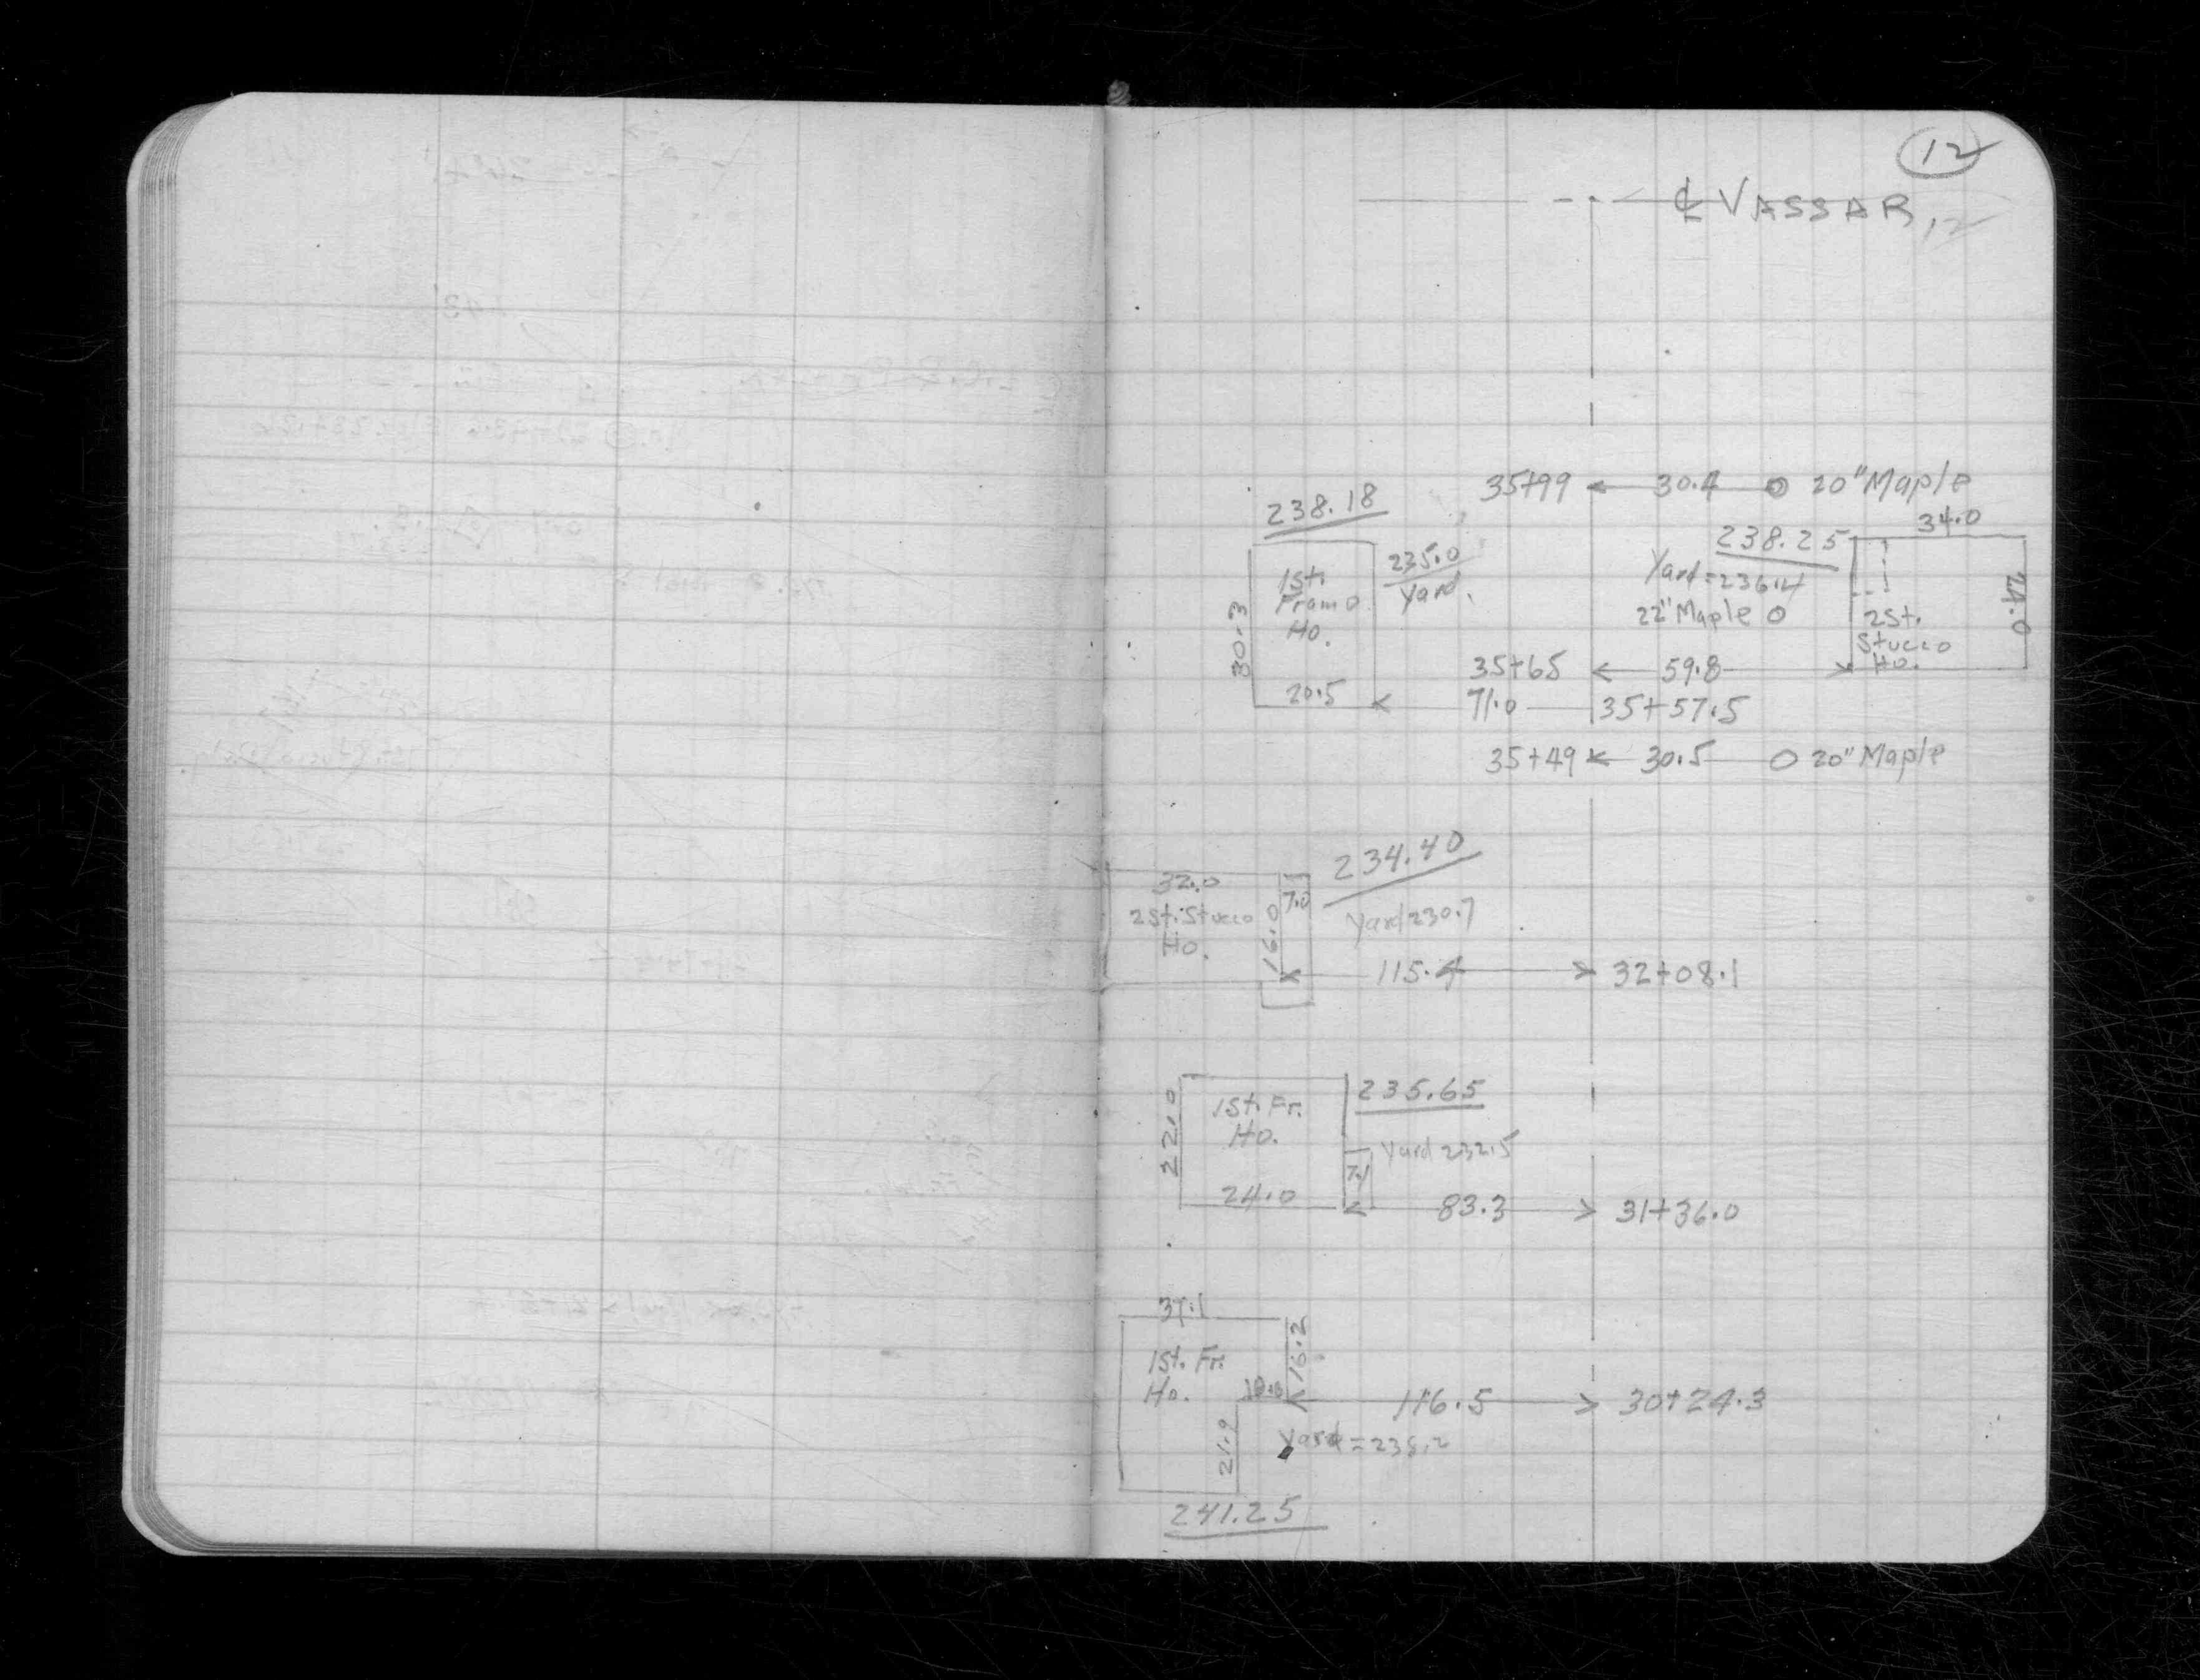 12
℄ VASSAR
12
35+99 30.4 20" Maple
34.0
238.18
238.25
235.0
Yard
Yard = 236.4
22" Maple
1 St.
Frame
Ho.
30.3
20.5
2 St.
Stucco
Ho.
24.0
35+65 59.8
71.0 35+57.5
35+49 30.5 20" Maple
234.40
32.0
7.0
2 St. Stucco
Ho.
16.0
Yard 230.7
115.4 32+08.1
235.65
1 St. Fr.
Ho.
22.0
Yard 232.5
7.1
24.0
83.3 31+36.0
37.1
16.2
1 St. Fr.
Ho.
116.5 30+24.3
21.9
Yard = 238.2
241.25